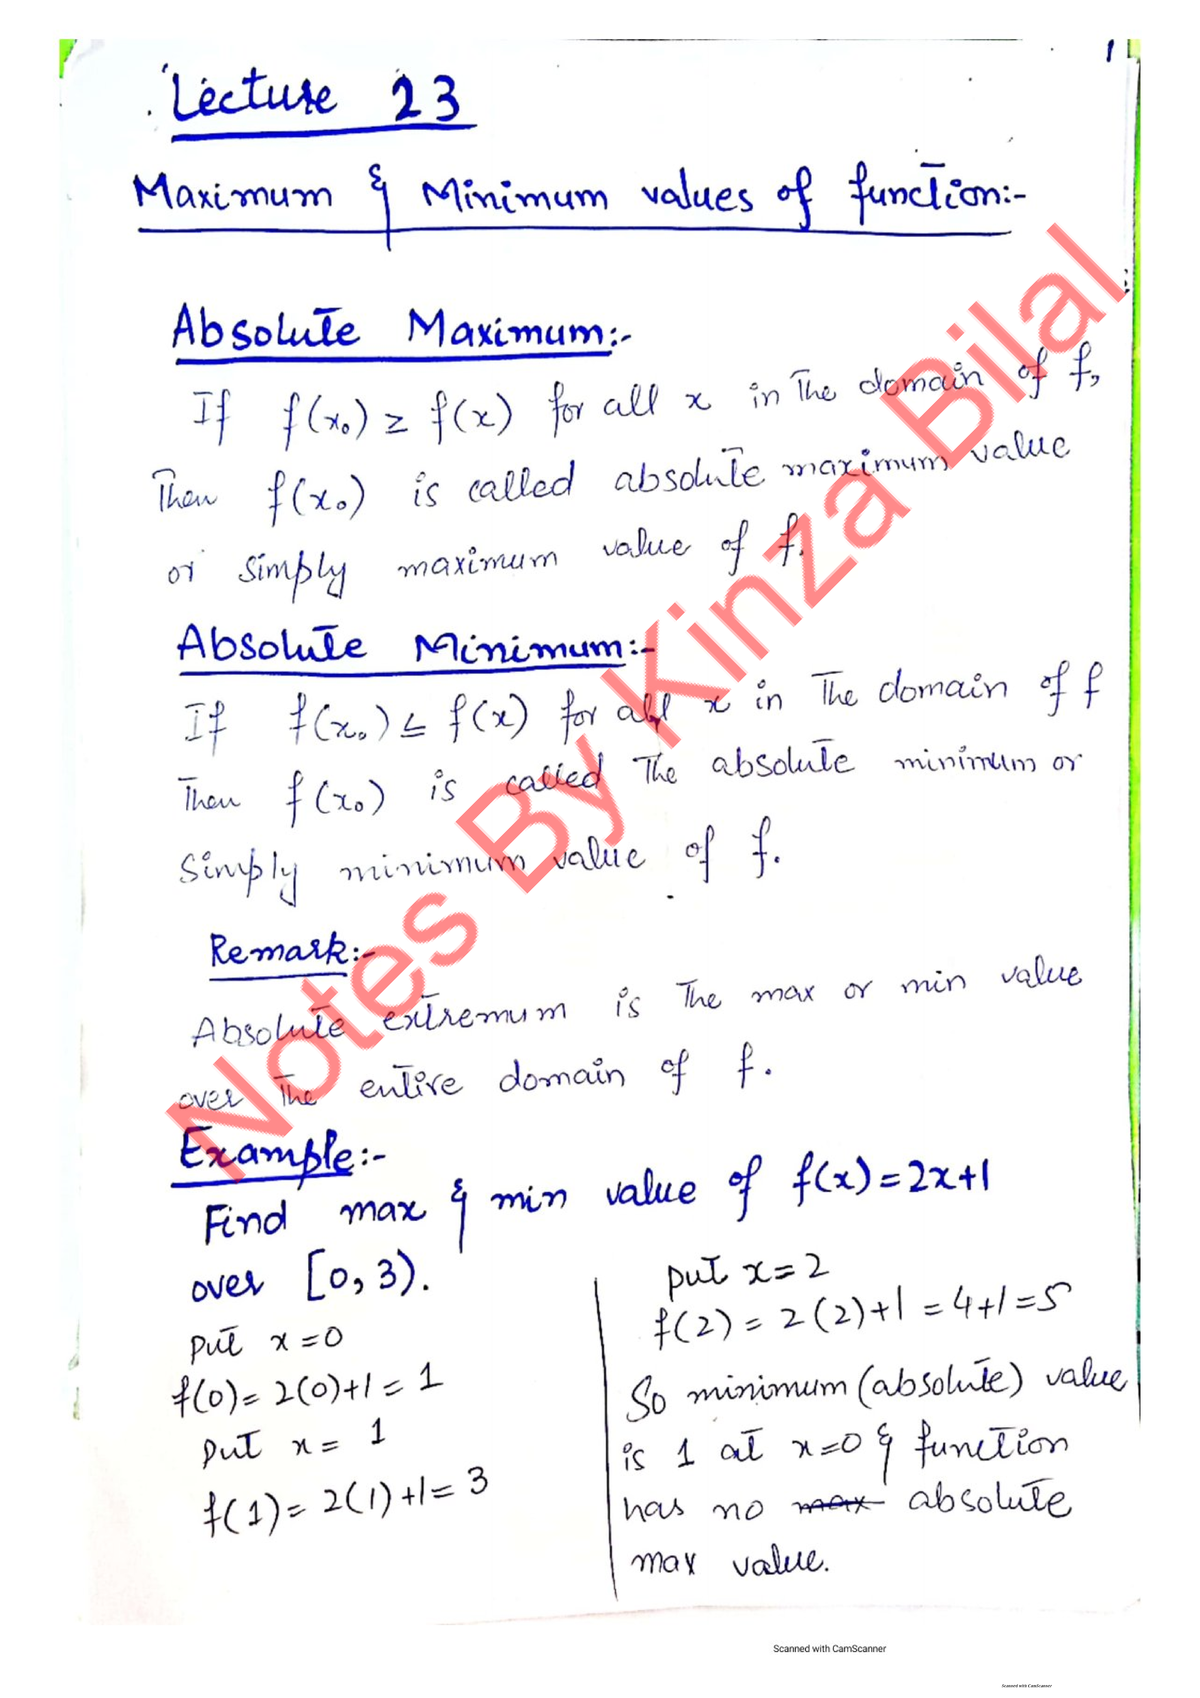 1
Lecture 23
Maximum & Minimum values of function:-
Absolute Maximum:-
If f(x₀) ≥ f(x) for all x in the domain of f,
Then f(x₀) is called absolute maximum value
or simply maximum value of f.
Absolute Minimum:-
If f(x₀) ≤ f(x) for all x in The domain of f
Then f(x₀) is called The absolute minimum or
Simply minimum value of f.
Remark:-
Absolute extremum is The max or min value
over The entire domain of f.
Example:-
Find max & min value of f(x)=2x+1
over [0,3).
put x=0
f(0)= 2(0)+1= 1
put x= 1
f(1)= 2(1)+1= 3
put x=2
f(2)= 2(2)+1 = 4+1=5
So minimum (absolute) value
is 1 at x=0 & function
has no max absolute
max value.
Notes By Kinza Bilal
Scanned with CamScanner
Scanned with CamScanner